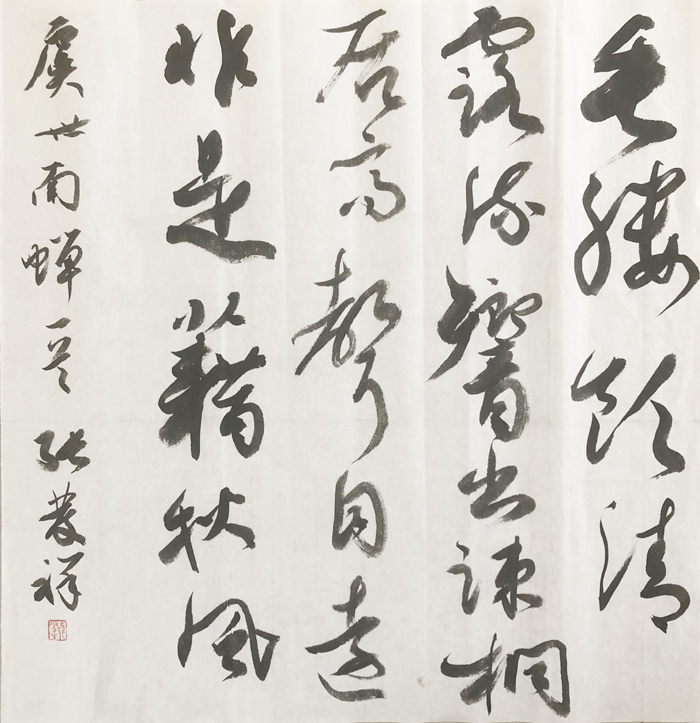 垂緌飲清
露流響出疎桐
居高聲自遠
非是藉秋風
虞世南蟬 張發祥